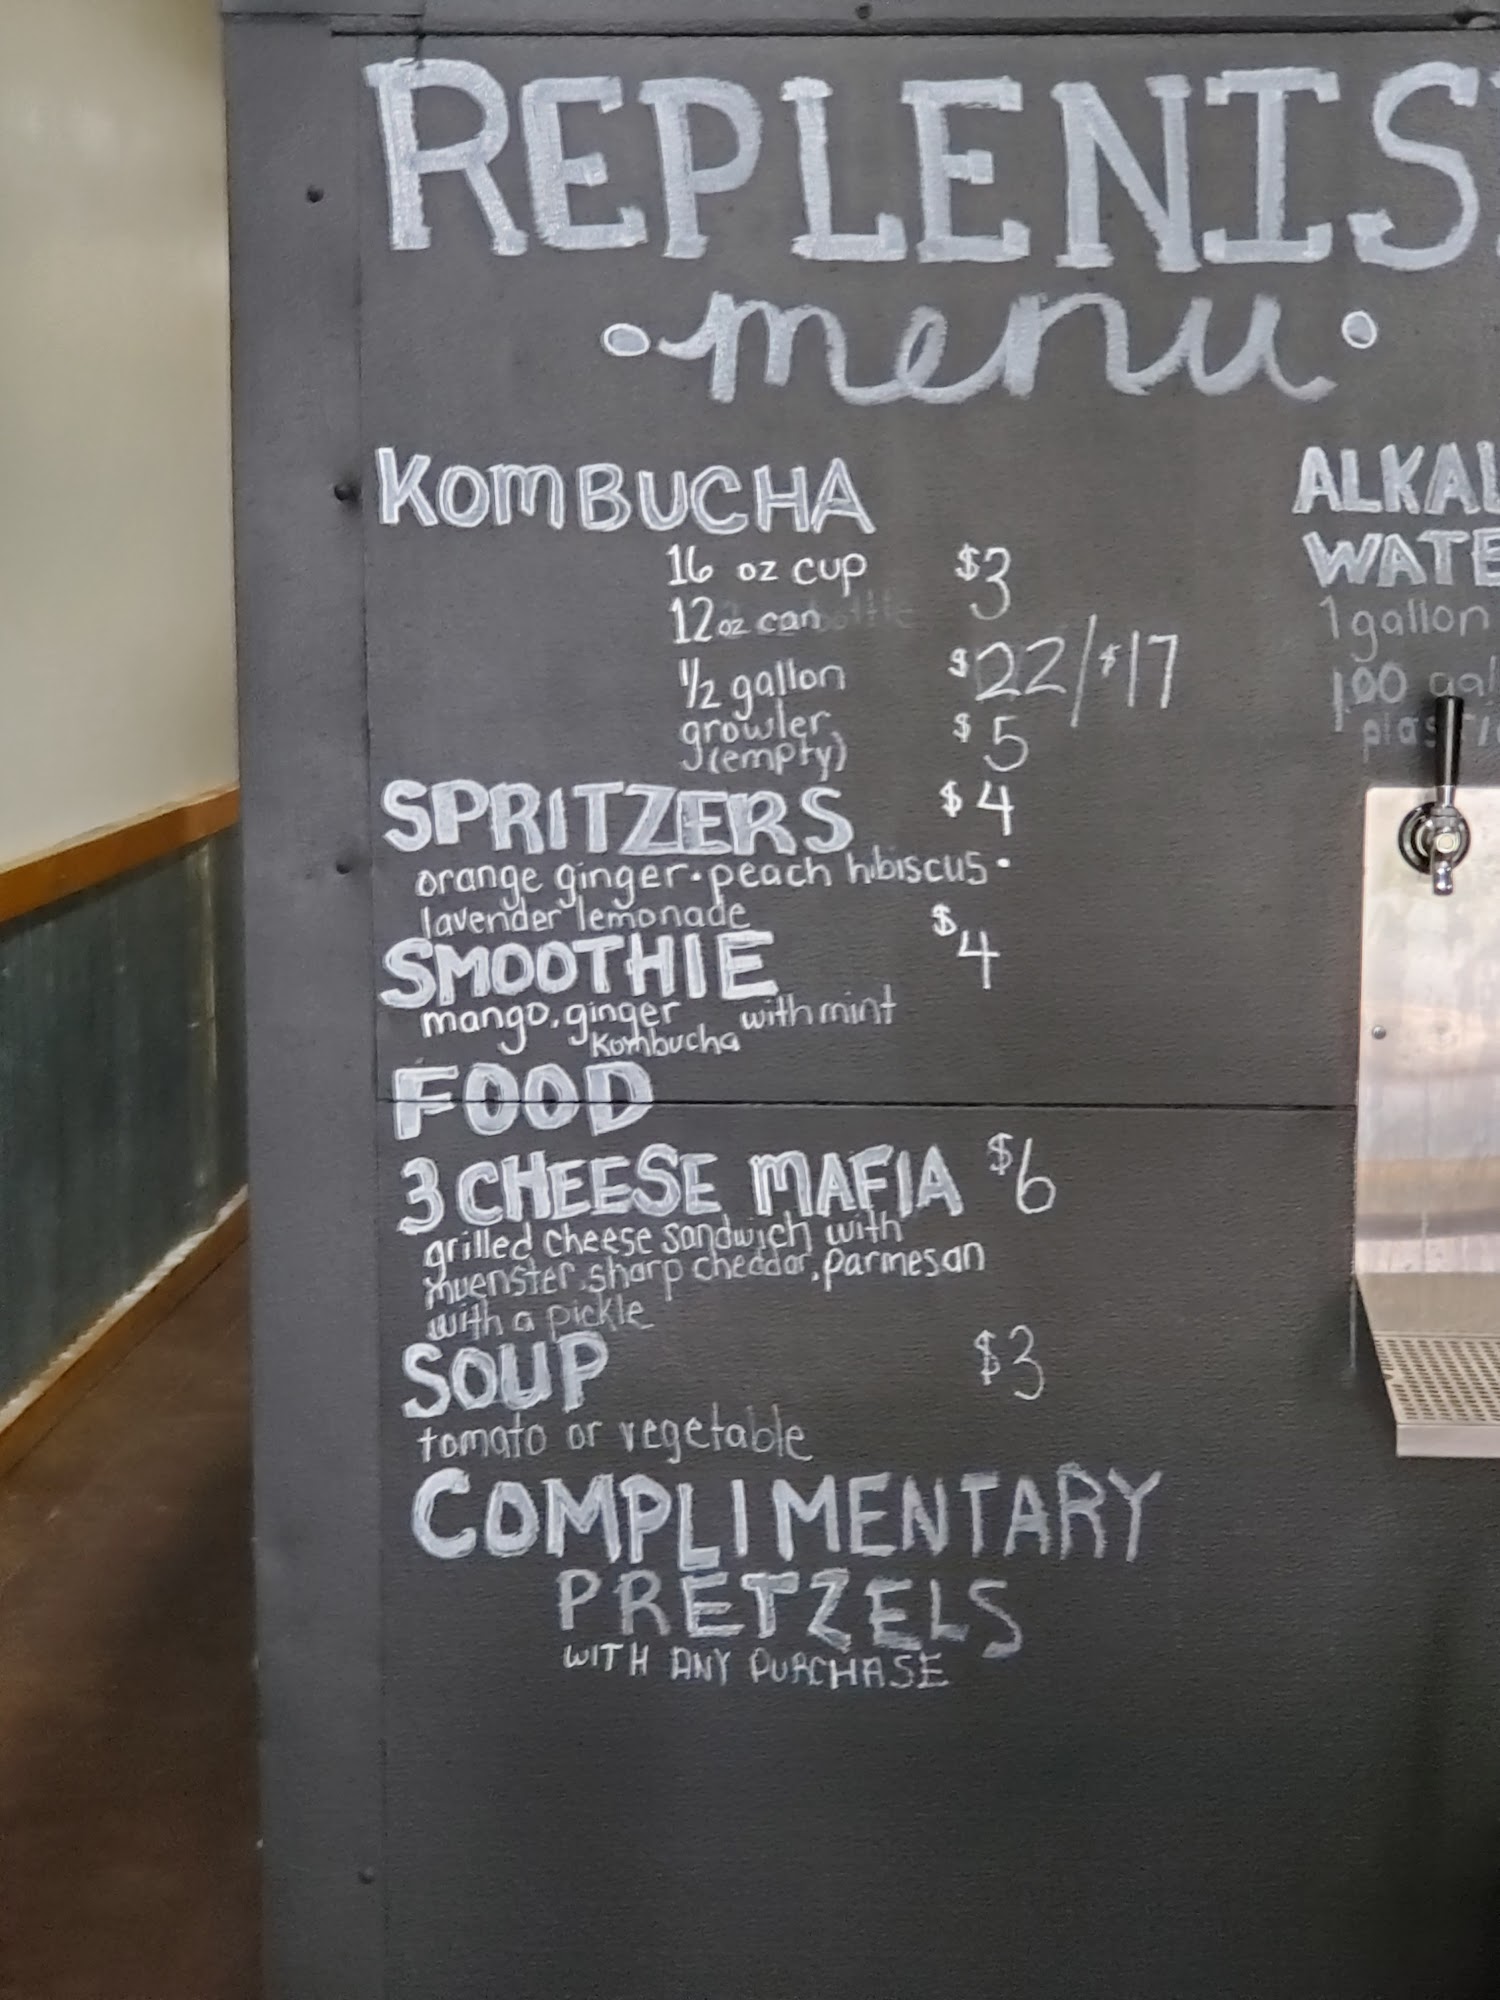 REPLENIS
menu
KOMBUCHA
16 oz cup $3
12oz can
1/2 gallon $22/$17
growler $5
(empty)
SPRITZERS $4
orange ginger • peach hibiscus •
lavender lemonade
SMOOTHIE $4
mango, ginger with mint
Kombucha
FOOD
3 CHEESE MAFIA $6
grilled cheese sandwich with
muenster, sharp cheddar, parmesan
with a pickle
SOUP $3
tomato or vegetable
COMPLIMENTARY
PRETZELS
WITH ANY PURCHASE
ALKAL
WATE
1 gallon
100 gal